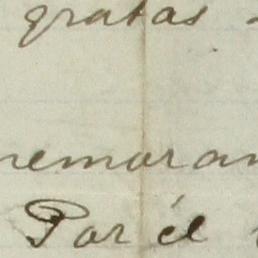 gratas
nemoran
Por él